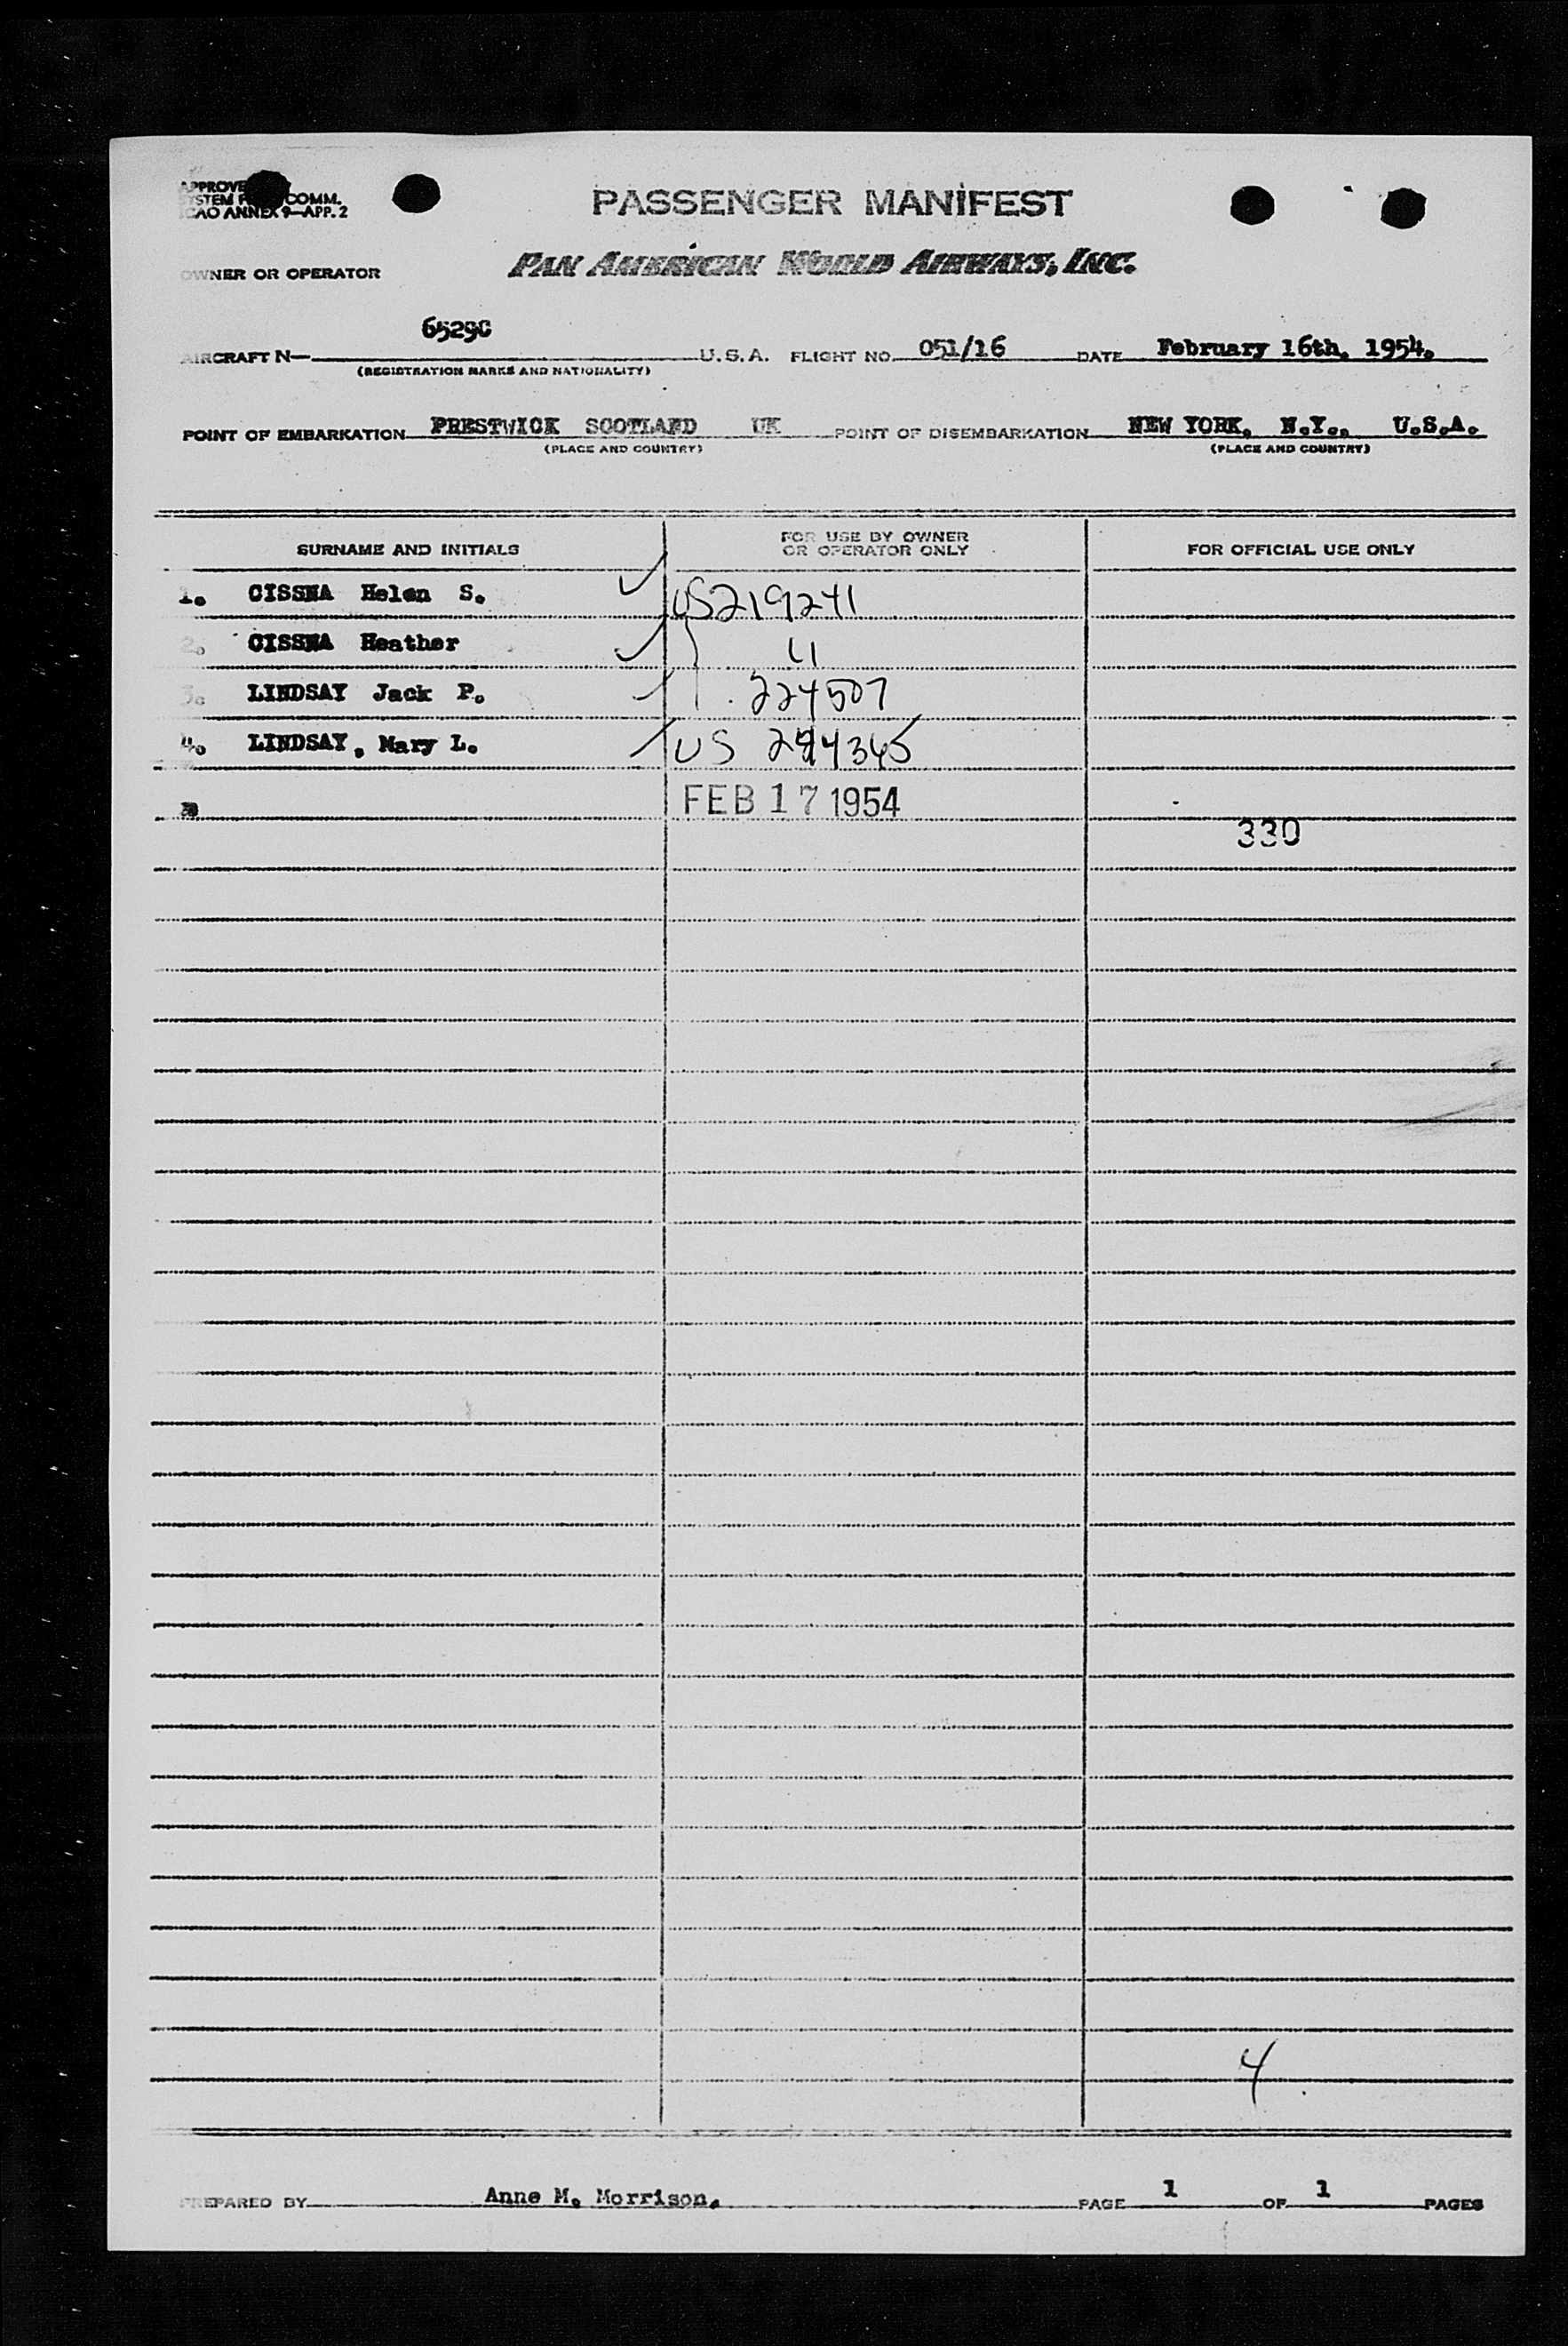 APPROVE
SYSTEM COMM.
ICAO ANNEX 9—APP. 2
PASSENGER MANIFEST
OWNER OR OPERATOR PAN AMERICAN WORLD AIRWAYS, INC.
AIRCRAFT N— 6529C U.S.A. FLIGHT NO. 051/16 DATE February 16th. 1954.
(REGISTRATION MARKS AND NATIONALITY)
POINT OF EMBARKATION PRESTWICK SCOTLAND UK POINT OF DISEMBARKATION NEW YORK. N.Y.. U.S.A.
(PLACE AND COUNTRY) (PLACE AND COUNTRY)
SURNAME AND INITIALS FOR USE BY OWNER OR OPERATOR ONLY FOR OFFICIAL USE ONLY
1. CISSNA Helen S. US219241
2. CISSNA Heather "
3. LINDSAY Jack P. 224507
4. LINDSAY, Mary L. US 244345
FEB 17 1954
330
4
PREPARED BY Anne M. Morrison. PAGE 1 OF 1 PAGES